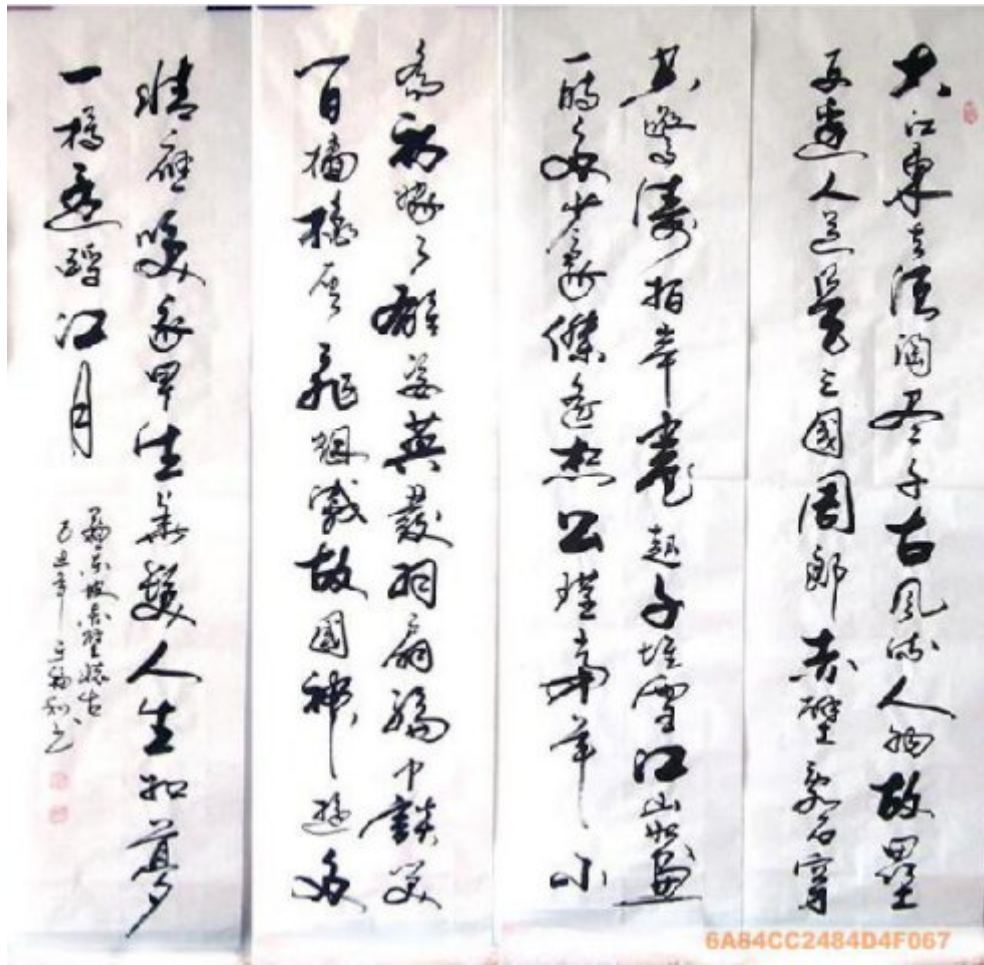 大江東去浪淘尽千古風流人物故壘
西邊人道是三國周郎赤壁亂石穿
空驚濤拍岸卷起千堆雪江山如畫
一時多少豪傑遙想公瑾當年小
喬初嫁了雄姿英發羽扇綸巾談笑
間檣櫓灰飛煙滅故國神遊多
情應笑我早生華髮人生如夢
一樽還酹江月
蘇東坡赤壁懷古
己丑年書
6A84CC2484D4F067